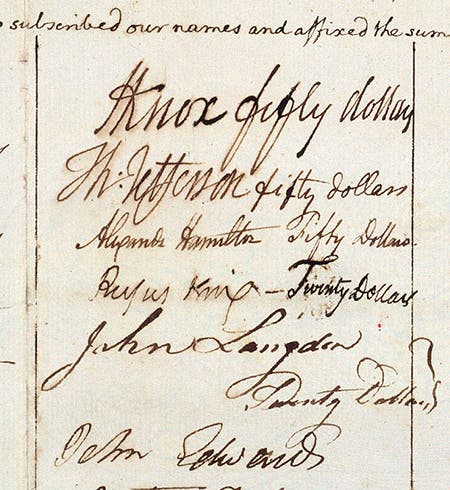 subscribed our names and affixed the sum
HKnox fifty dollars
Th: Jefferson fifty dollars
Alexander Hamilton Fifty Dollars.
Rufus King – Twenty Dollars
John Langdon
Twenty Dollars
John Edwards